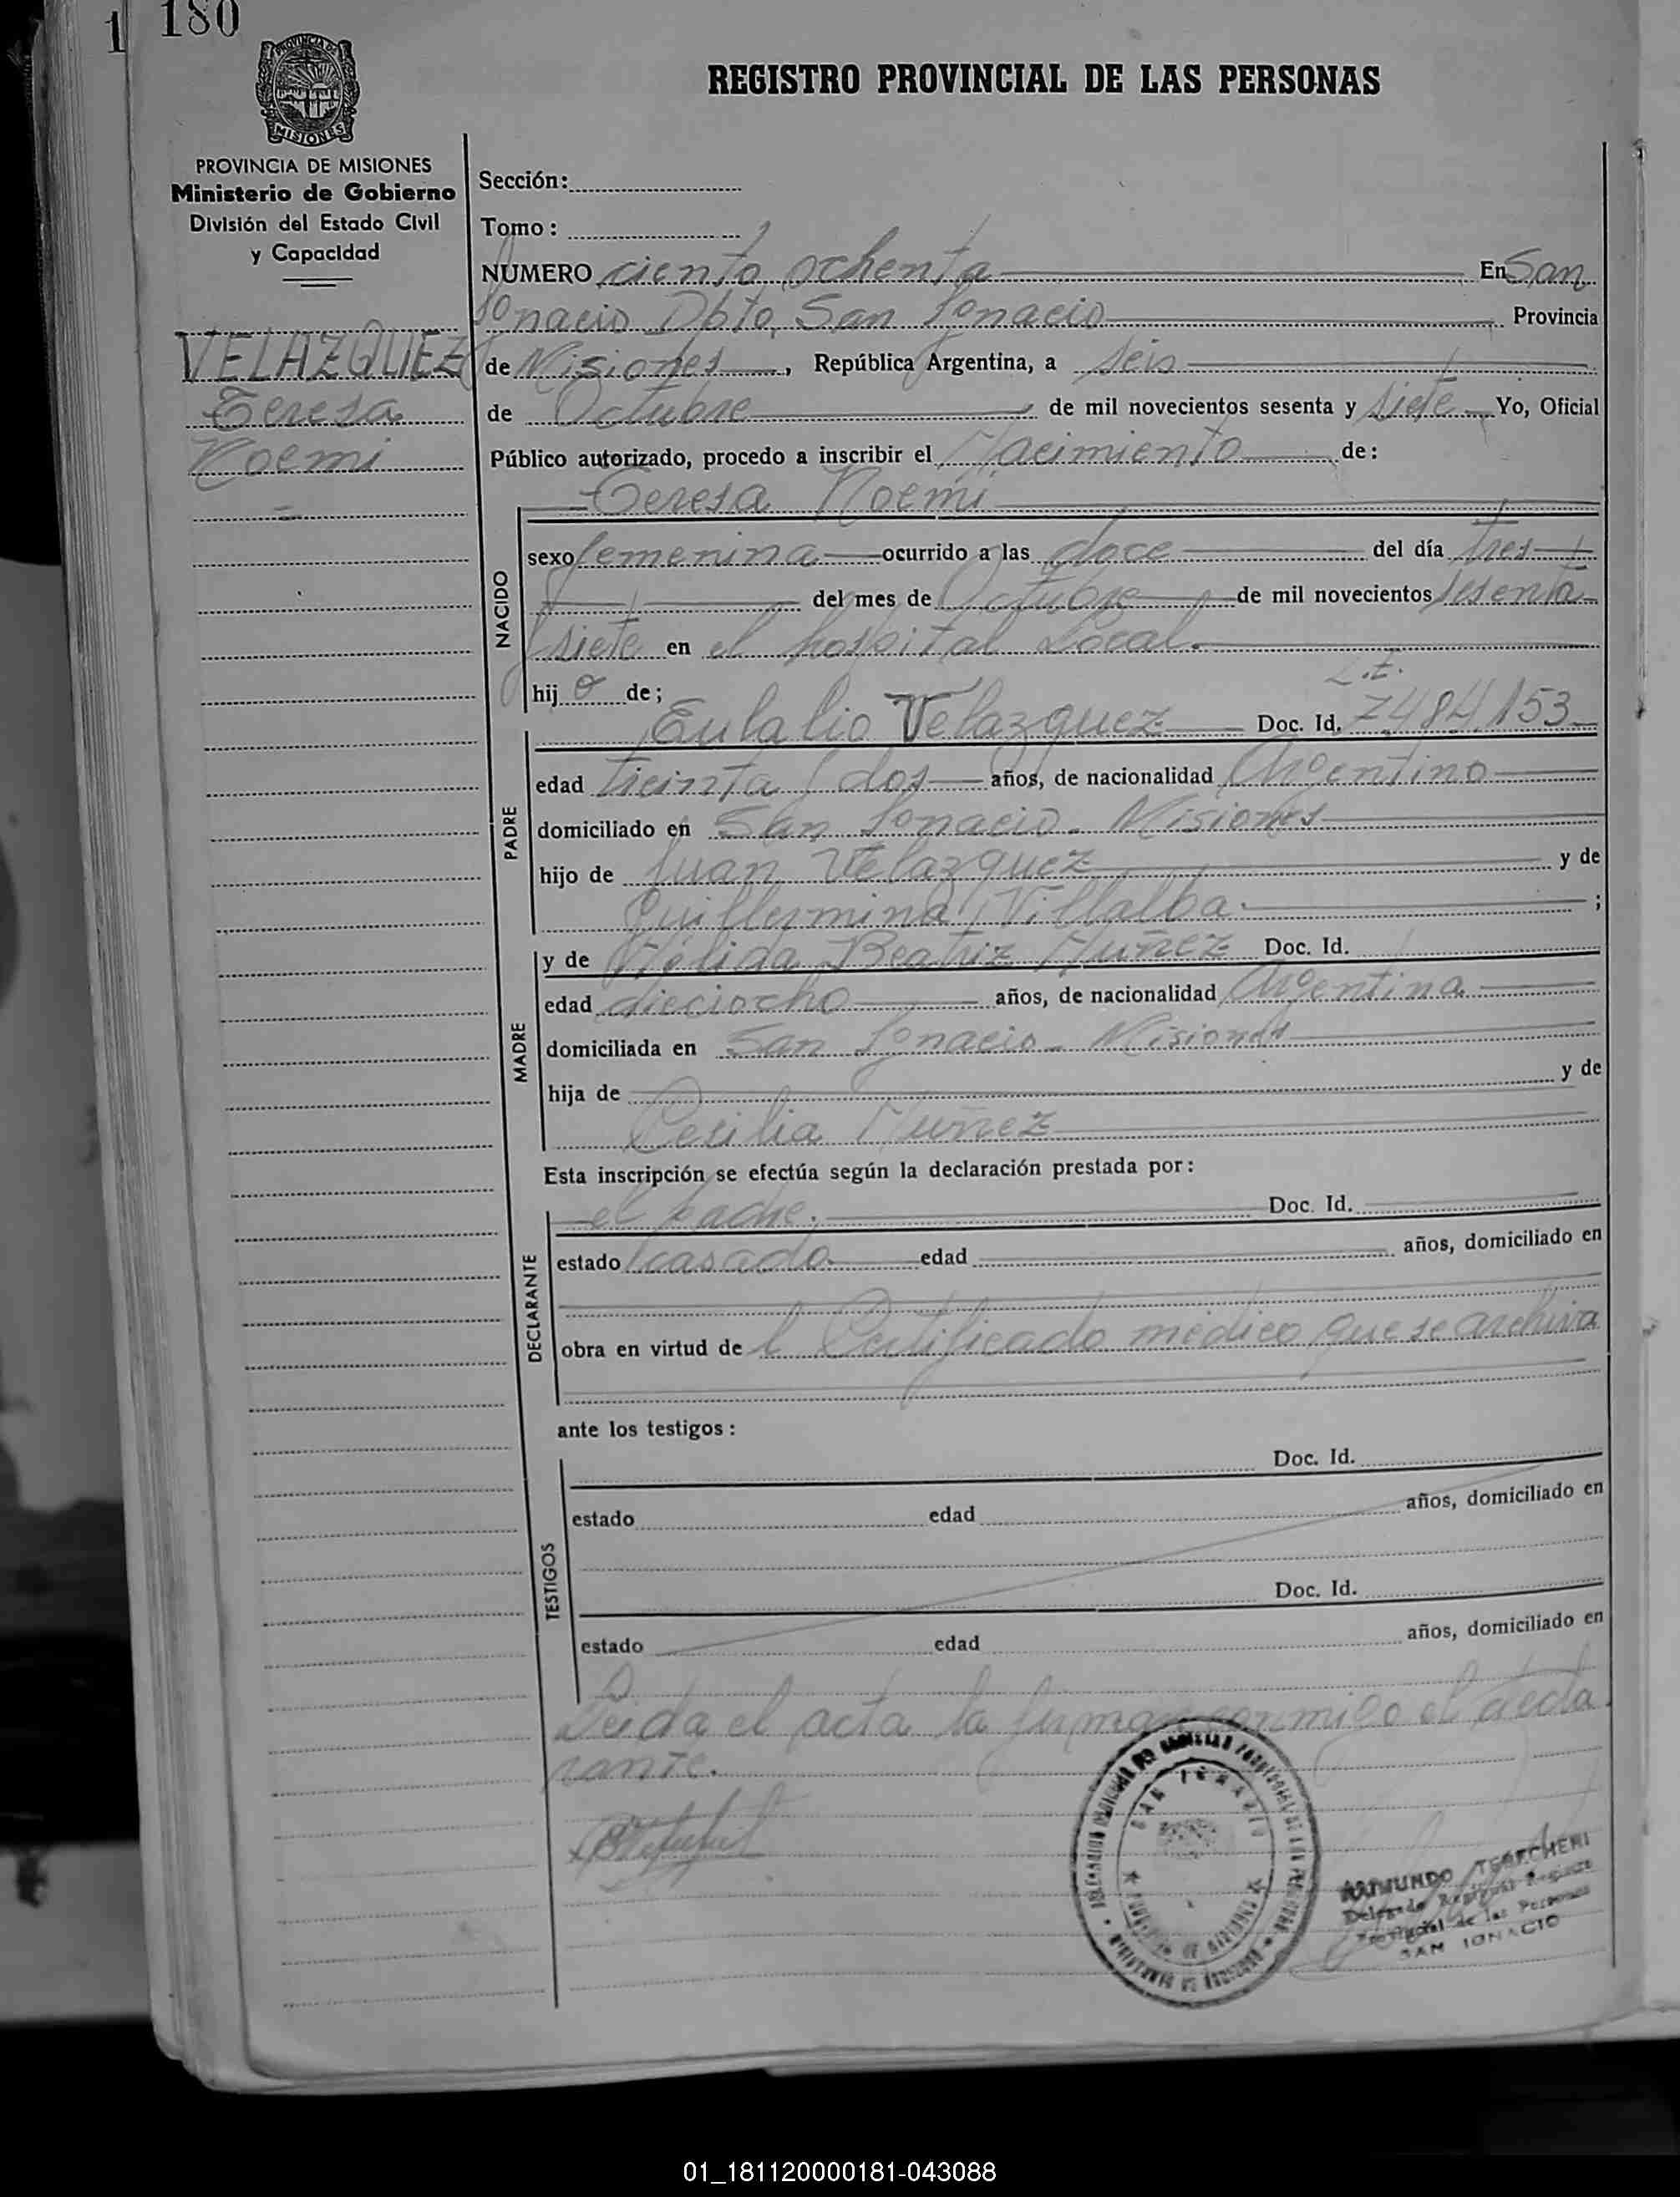 1 180
REGISTRO PROVINCIAL DE LAS PERSONAS
PROVINCIA DE
MISIONES
PROVINCIA DE MISIONES
Ministerio de Gobierno
División del Estado Civil
y Capacidad
VELAZQUEZ
Teresa
Noemi
Sección:
Tomo:
NUMERO ciento ochenta En San
Ignacio Dpto. San Ignacio Provincia
de Misiones, República Argentina, a seis
de Octubre de mil novecientos sesenta y siete Yo, Oficial
Público autorizado, procedo a inscribir el Nacimiento de:
Teresa Noemi
NACIDO
sexo femenina ocurrido a las doce del día tres
del mes de Octubre de mil novecientos sesenta
y siete en el hospital Local.
hij a de;
L.E.
PADRE
Eulalio Velazquez Doc. Id. 7484153
edad treinta y dos años, de nacionalidad Argentino
domiciliado en San Ignacio - Misiones
hijo de Juan Velazquez y de
Guillermina Villalba ;
MADRE
y de Beatriz Muñez Doc. Id.
edad dieciocho años, de nacionalidad Argentina
domiciliada en San Ignacio - Misiones
hija de y de
Cecilia Muñez
Esta inscripción se efectúa según la declaración prestada por:
DECLARANTE
el padre. Doc. Id.
estado casado edad años, domiciliado en
obra en virtud de l Certificado médico que se archiva
ante los testigos:
TESTIGOS
Doc. Id.
estado edad años, domiciliado en
Doc. Id.
estado edad años, domiciliado en
Leida el acta la firma conmigo el decla
rante.
SAN IGNACIO
RAIMUNDO
Delegado Regional Registro
Provincial de las Personas
SAN IGNACIO
01_181120000181-043088